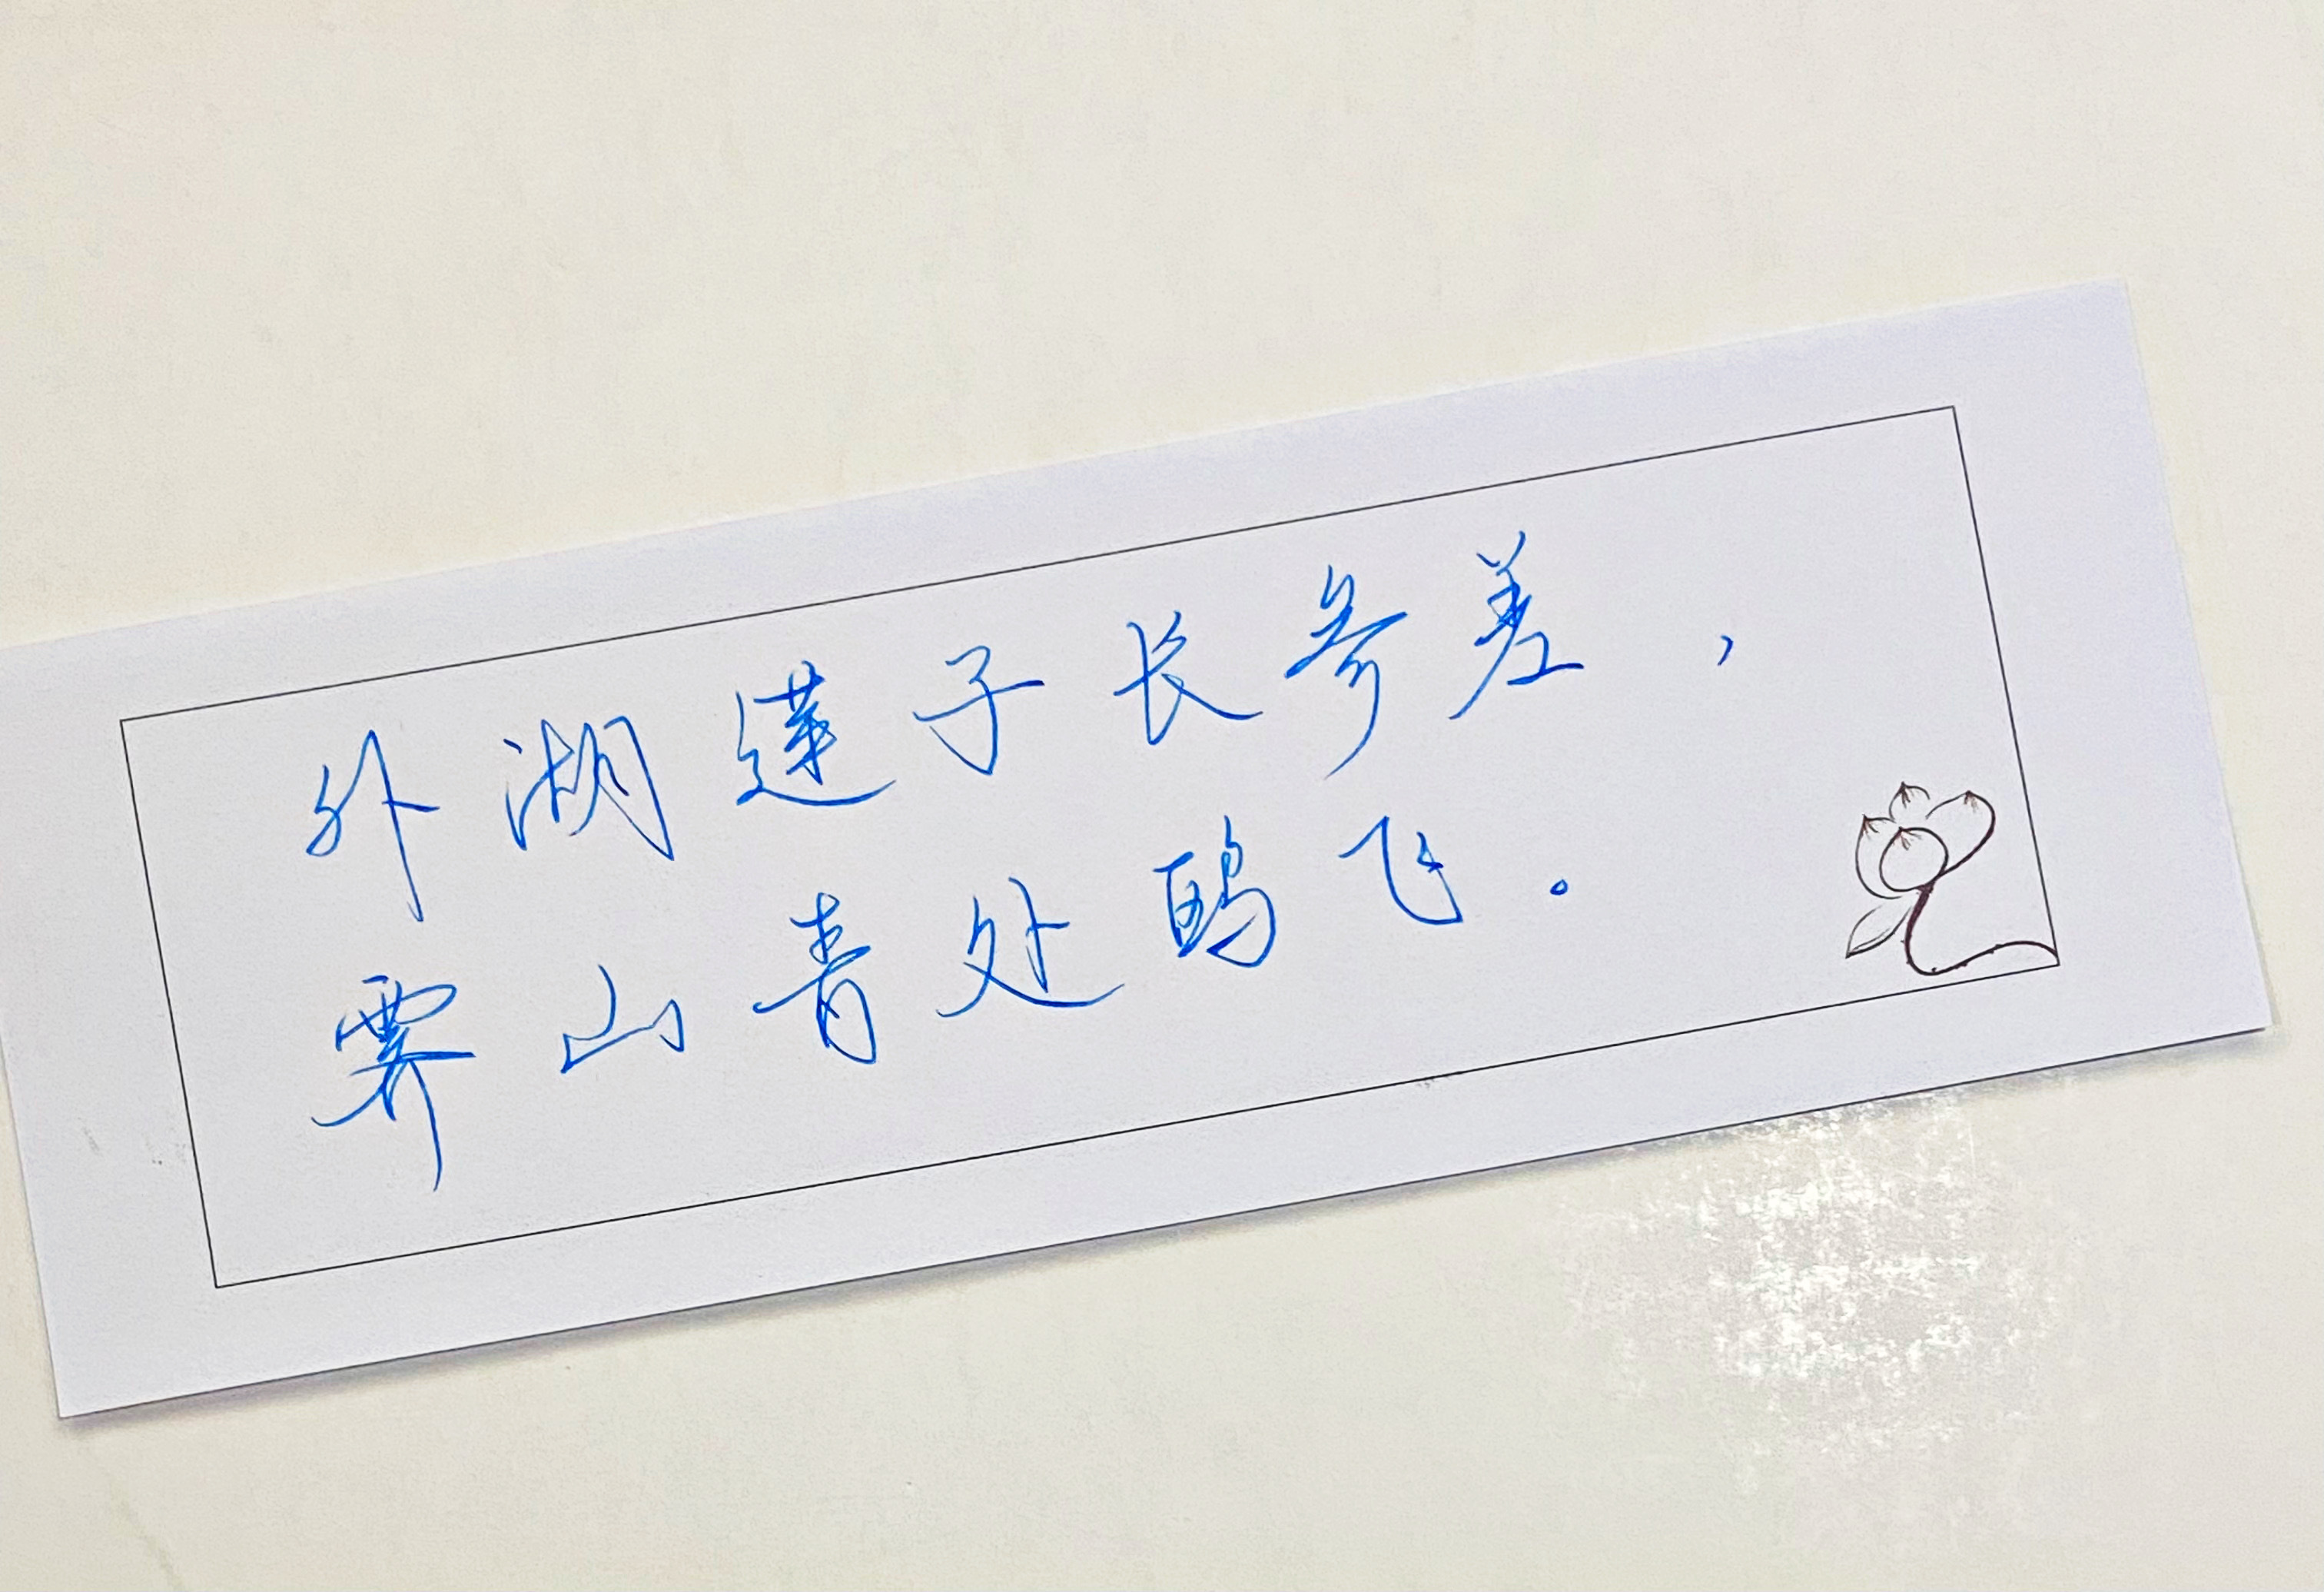 外湖莲子长参差，
霁山青处鸥飞。